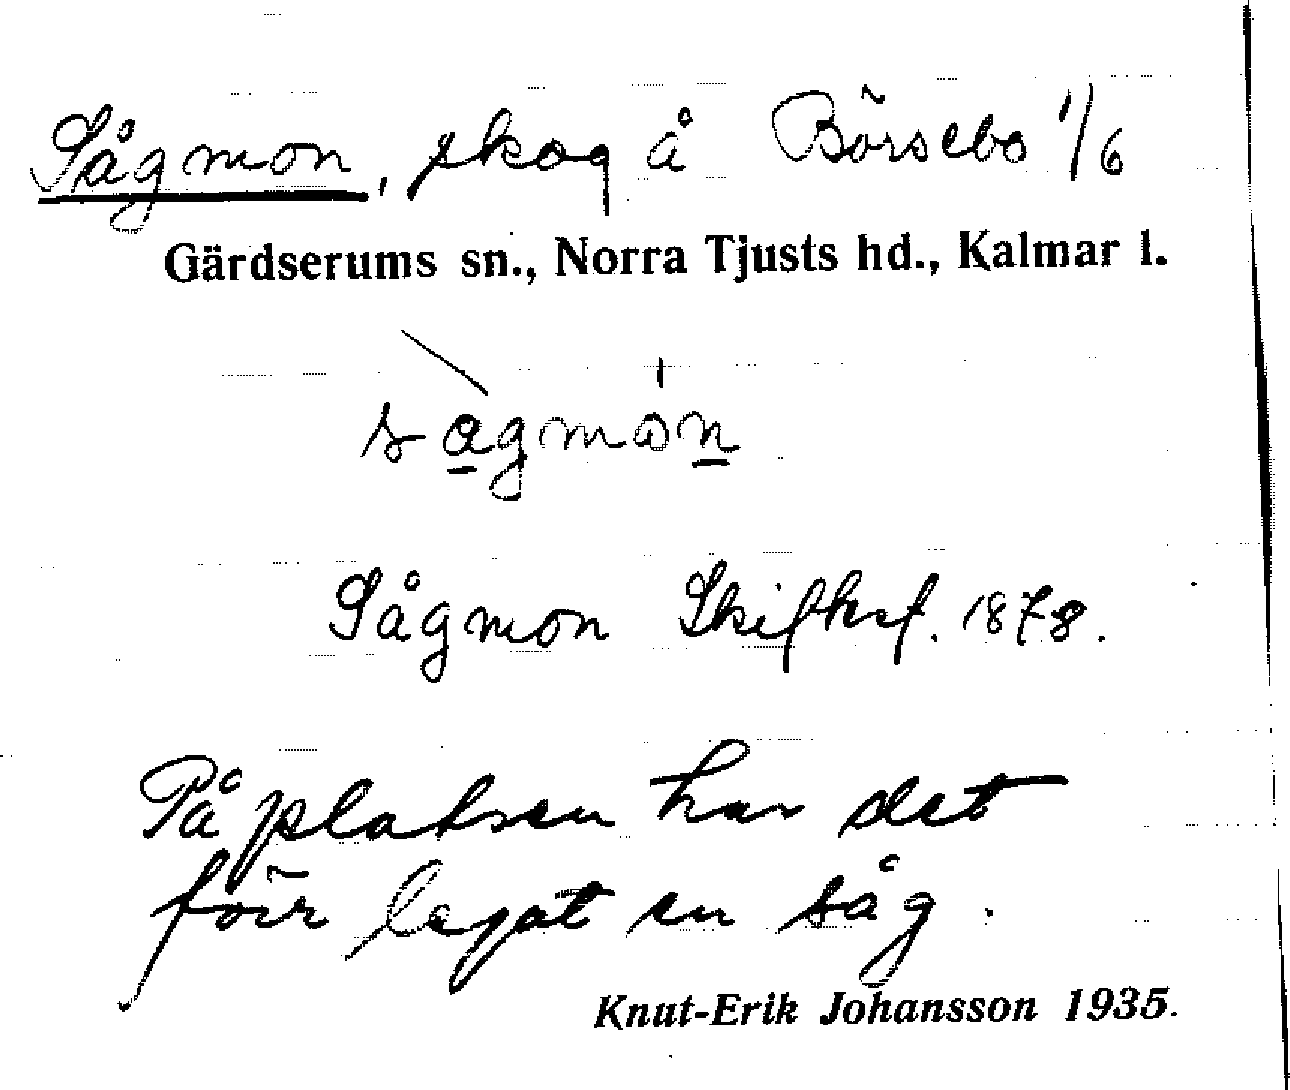 Sågmon, skog å Börsebo 1/6
Gärdserums sn., Norra Tjusts hd., Kalmar l.
sagmon
Sågmon Skifksf. 1878.
På platsen har det
förr legat en såg.
Knut-Erik Johansson 1935.